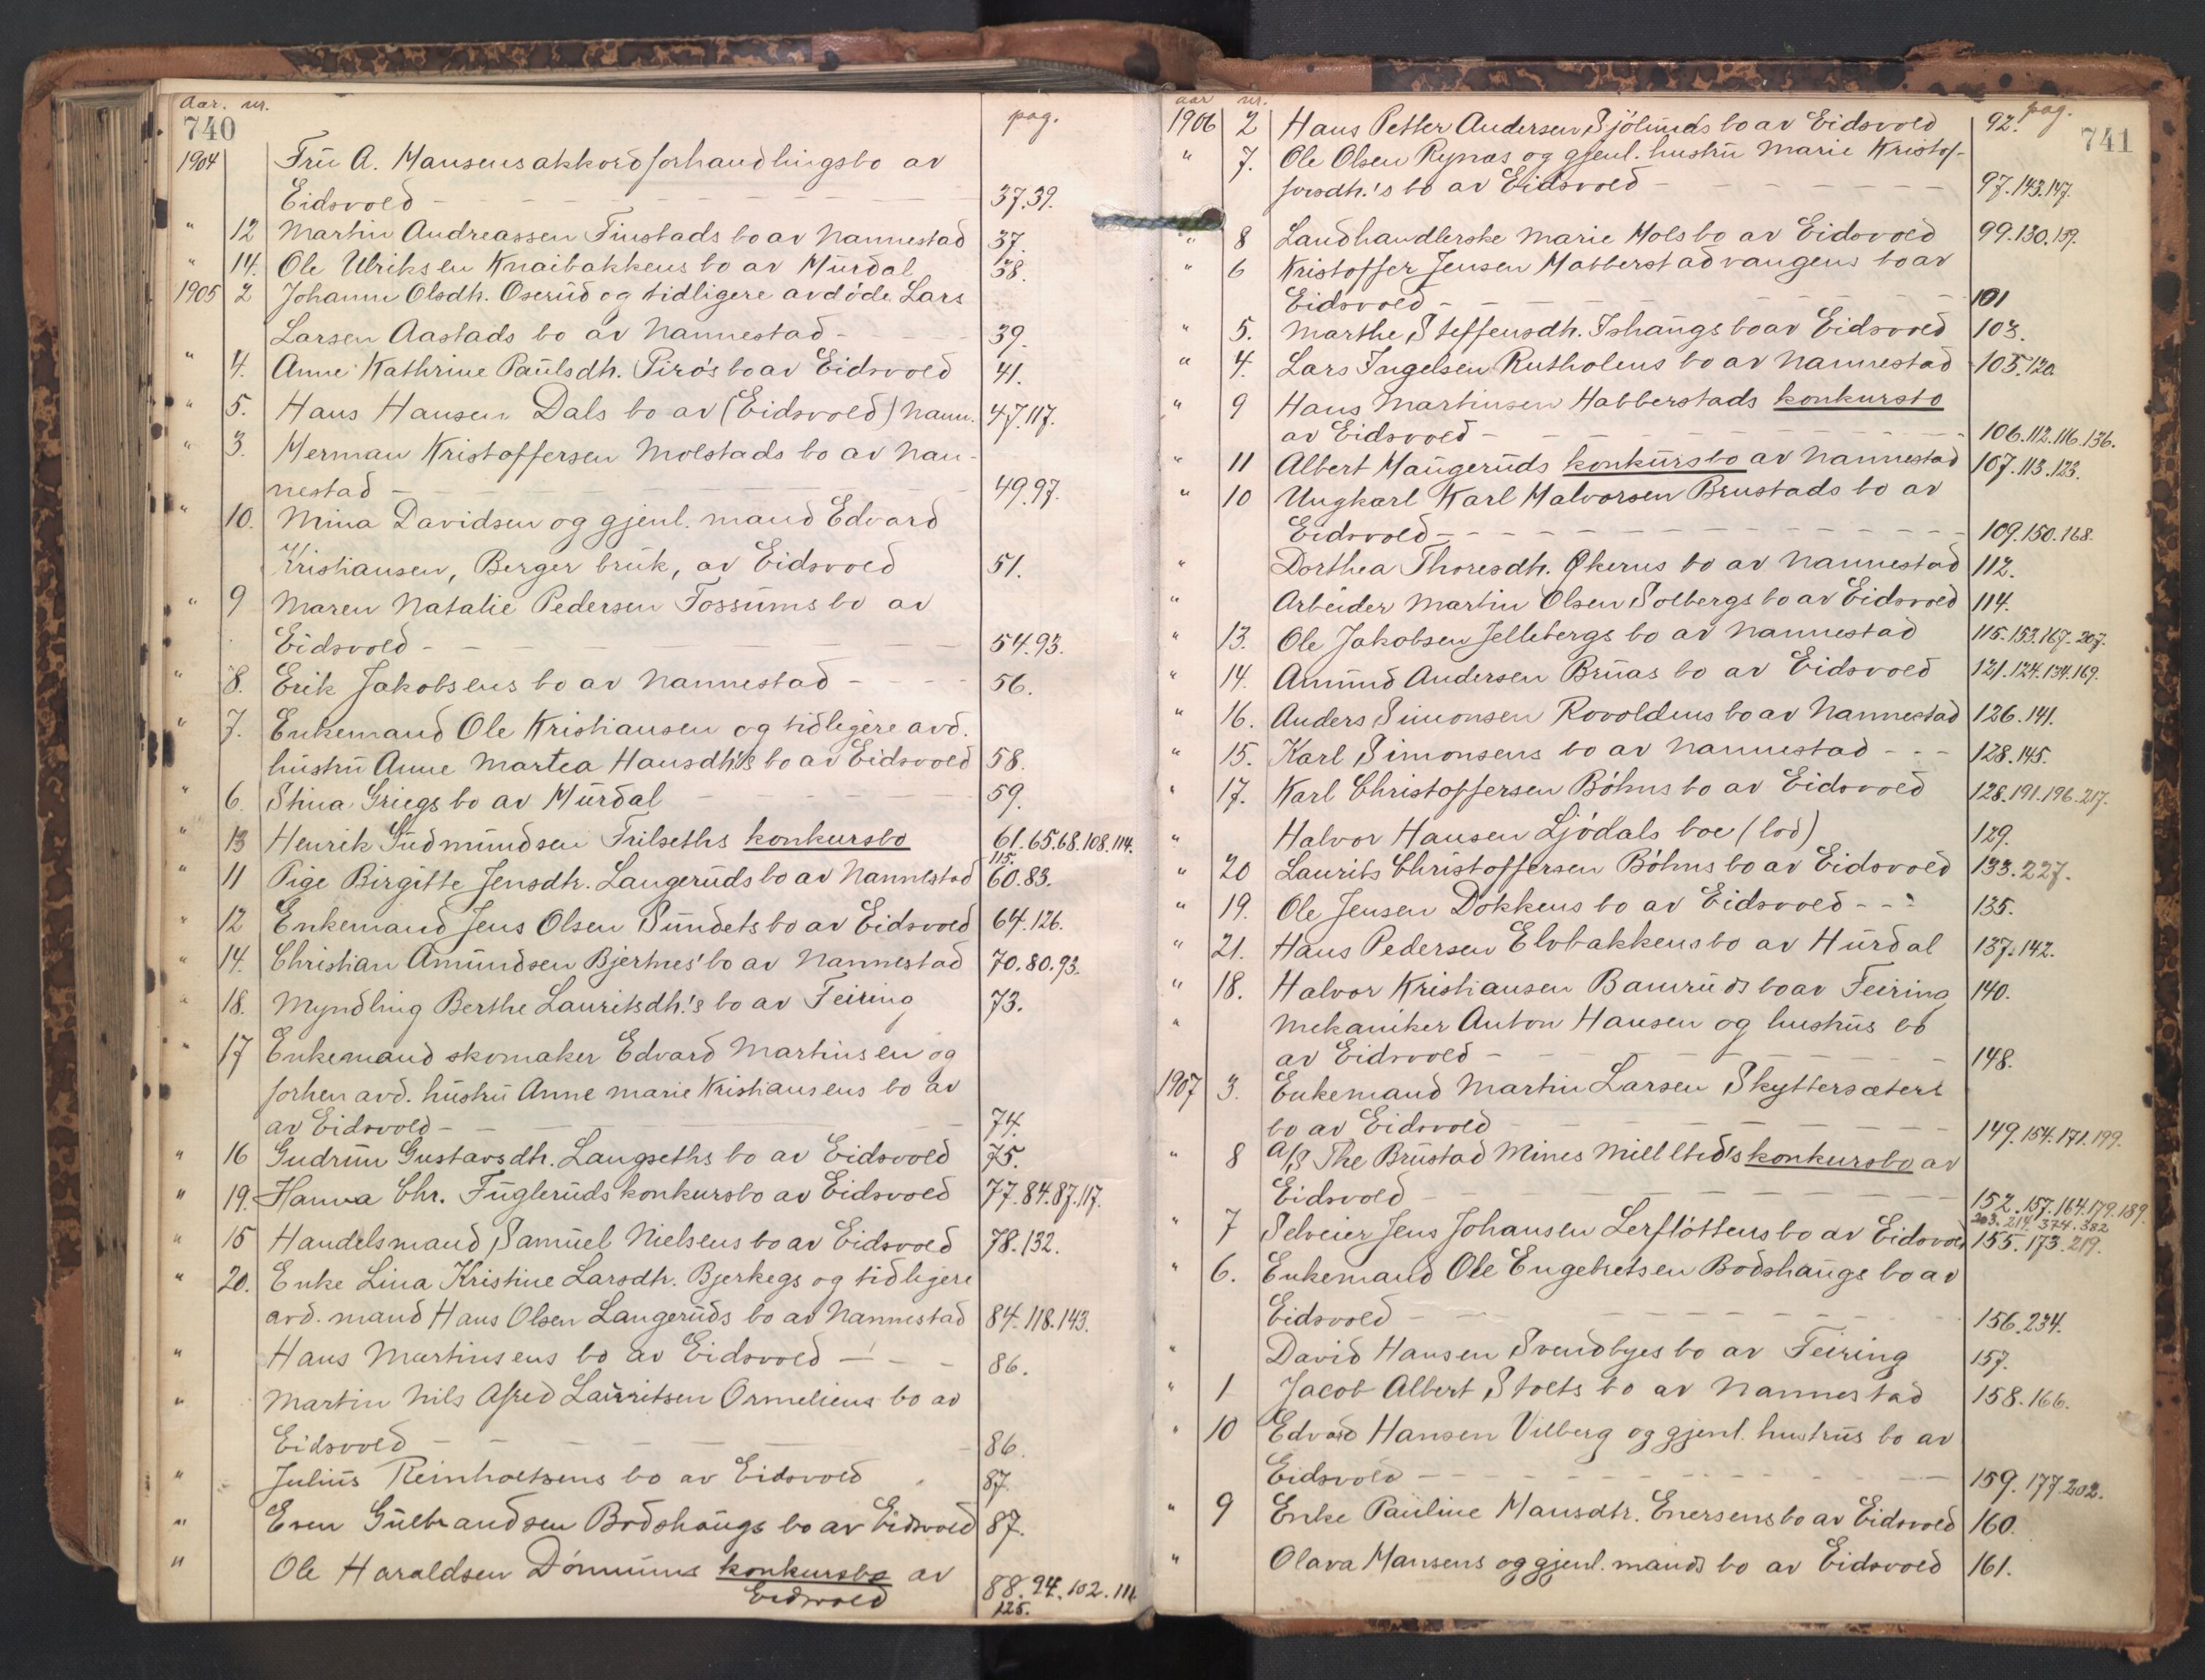 Aar. nr. pag.
740
1904 Fru A. Hansens akkordforhandlingsbo av
Eidsvold - - - 37.39.
" 12 Martin Andreassen Finstads bo av Nannestad 37.
" 14. Ole Ulriksen Knaibakkens bo av Hurdal 38.
1905 2 Johanne Olsdtr. Oserud og tidligere avdøde Lars
Larsen Aastads bo av Nannestad - - - 39.
" 4. Anne Kathrine Paulsdtr. Pirös bo av Eidsvold 41.
" 5. Hans Hansen Dals bo av (Eidsvold) Nann. 47.117.
" 3. Herman Kristoffersen Molstads bo av Nan-
nestad - - - 49.97.
" 10. Mina Davidsen og gjenl. mand Edvard
Kristiansen, Berger bruk, av Eidsvold 51.
" 9 Maren Natalie Pedersen Fossums bo av
Eidsvold - - - 54.93.
" 8. Erik Jakobsens bo av Nannestad - - - 56.
" 7. Enkemand Ole Kristiansen og tidligere avd.
hustru Anne Martea Hansdtr's bo av Eidsvold 58.
" 6. Stina Griegs bo av Hurdal - - - 59.
" 13 Henrik Gudmundsen Trilseths konkursbo 61.65.68.108.114.
115.
" 11 Pige Birgitte Jensdtr. Langeruds bo av Nannestad 60.83.
" 12 Enkemand Jens Olsen Sundets bo av Eidsvold 64.126.
" 14. Christian Amundsen Bjertnes' bo av Nannestad 70.80.93.
" 18. Myndling Berthe Lauritsdtr.'s bo av Feiring 73.
" 17 Enkemand skomaker Edvard Martinsen og
forhen avd. hustru Anne Marie Kristiansens bo av
av Eidsvold - - - 74.
" 16 Gudrun Gustavsdtr. Langseths bo av Eidsvold 75.
" 19. Hanna Chr. Fugleruds konkursbo av Eidsvold 77.84.87.117.
" 15 Handelsmand Samuel Nielsens bo av Eidsvold 78.132.
" 20. Enke Lina Kristine Larsdtr. Bjerkegs og tidligere
avd. mand Hans Olsen Langeruds bo av Nannestad 84.118.143.
" Hans Martinsens bo av Eidsvold - - - 86.
" Martin Nils Alfred Lauritsen Ormeliens bo av
Eidsvold - - - 86.
" Julius Reinholtsens bo av Eidsvold 87.
" Even Gulbrandsen Bodshaugs bo av Eidsvold 87.
" Ole Haraldsen Dønnums konkursbo av
Eidsvold 88.94.102.111.
125.
aar nr. pag.
741
1906 2 Hans Petter Andersen Sjölunds bo av Eidsvold 92.
" 7. Ole Olsen Rynas og gjenl. hustru Marie Kristof-
fersdtr.'s bo av Eidsvold - - - 97.143.147.
" 8 Landhandlerske Marie Mols bo av Eidsvold 99.130.159.
" 6 Kristoffer Jensen Habberstadvangens bo av
Eidsvold - - - 101
" 5. Marthe Steffensdtr. Ishaugs bo av Eidsvold 103.
" 4. Lars Ingelsen Rutholens bo av Nannestad 105.120.
" 9 Hans Martinsen Habberstads konkursbo
av Eidsvold - - - 106.112.116.136.
" 11 Albert Haugeruds konkursbo av Nannestad 107.113.123.
" 10 Ungkarl Karl Halvorsen Brustads bo av
Eidsvold - - - 109.150.168.
" Dorthea Thoresdtr. Økerns bo av Nannestad 112.
" Arbeider Martin Olsen Solbergs bo av Eidsvold 114.
" 13. Ole Jakobsen Jellebergs bo av Nannestad 115.153.167.207.
" 14. Amund Andersen Bruas bo av Eidsvold 121.124.134.169.
" 16. Anders Simonsen Rovoldens bo av Nannestad 126.141.
" 15. Karl Simonsens bo av Nannestad - - - 128.145.
" 17. Karl Christoffersen Böhns bo av Eidsvold 128.191.196.217.
" Halvor Hansen Ljödals boe (bod) 129.
" 20 Laurits Christoffersen Böhns bo av Eidsvold 133.227.
" 19. Ole Jensen Dokkens bo av Eidsvold - - - 135.
" 21. Hans Pedersen Elvbakkens bo av Hurdal 137.142.
" 18. Halvor Kristiansen Bamruds bo av Feiring 140.
" Mekaniker Anton Hansen og hustrus bo
av Eidsvold - - - 148.
1907 3. Enkemand Martin Larsen Skyttersæters
bo av Eidsvold - - - 149.154.171.199.
" 8 A/S The Brustad Mines Mill Ltd's konkursbo av
Eidsvold - - - 152.157.164.179.189.
203.214.374.382
" 7 Selveier Jens Johansen Lerflöttens bo av Eidsvold 155.173.219.
" 6. Enkemand Ole Engebretsen Bodshaugs bo av
Eidsvold - - - 156.234.
" David Hansen Svendbyes bo av Feiring 157.
" 1 Jacob Albert Stolts bo av Nannestad 158.166.
" 10 Edvard Hansen Vilberg og gjenl. hustrus bo av
Eidsvold - - - 159.177.202.
" 9 Enke Pauline Hansdtr. Enersens bo av Eidsvold 160.
" Olava Hansens og gjenl. mands bo av Eidsvold 161.